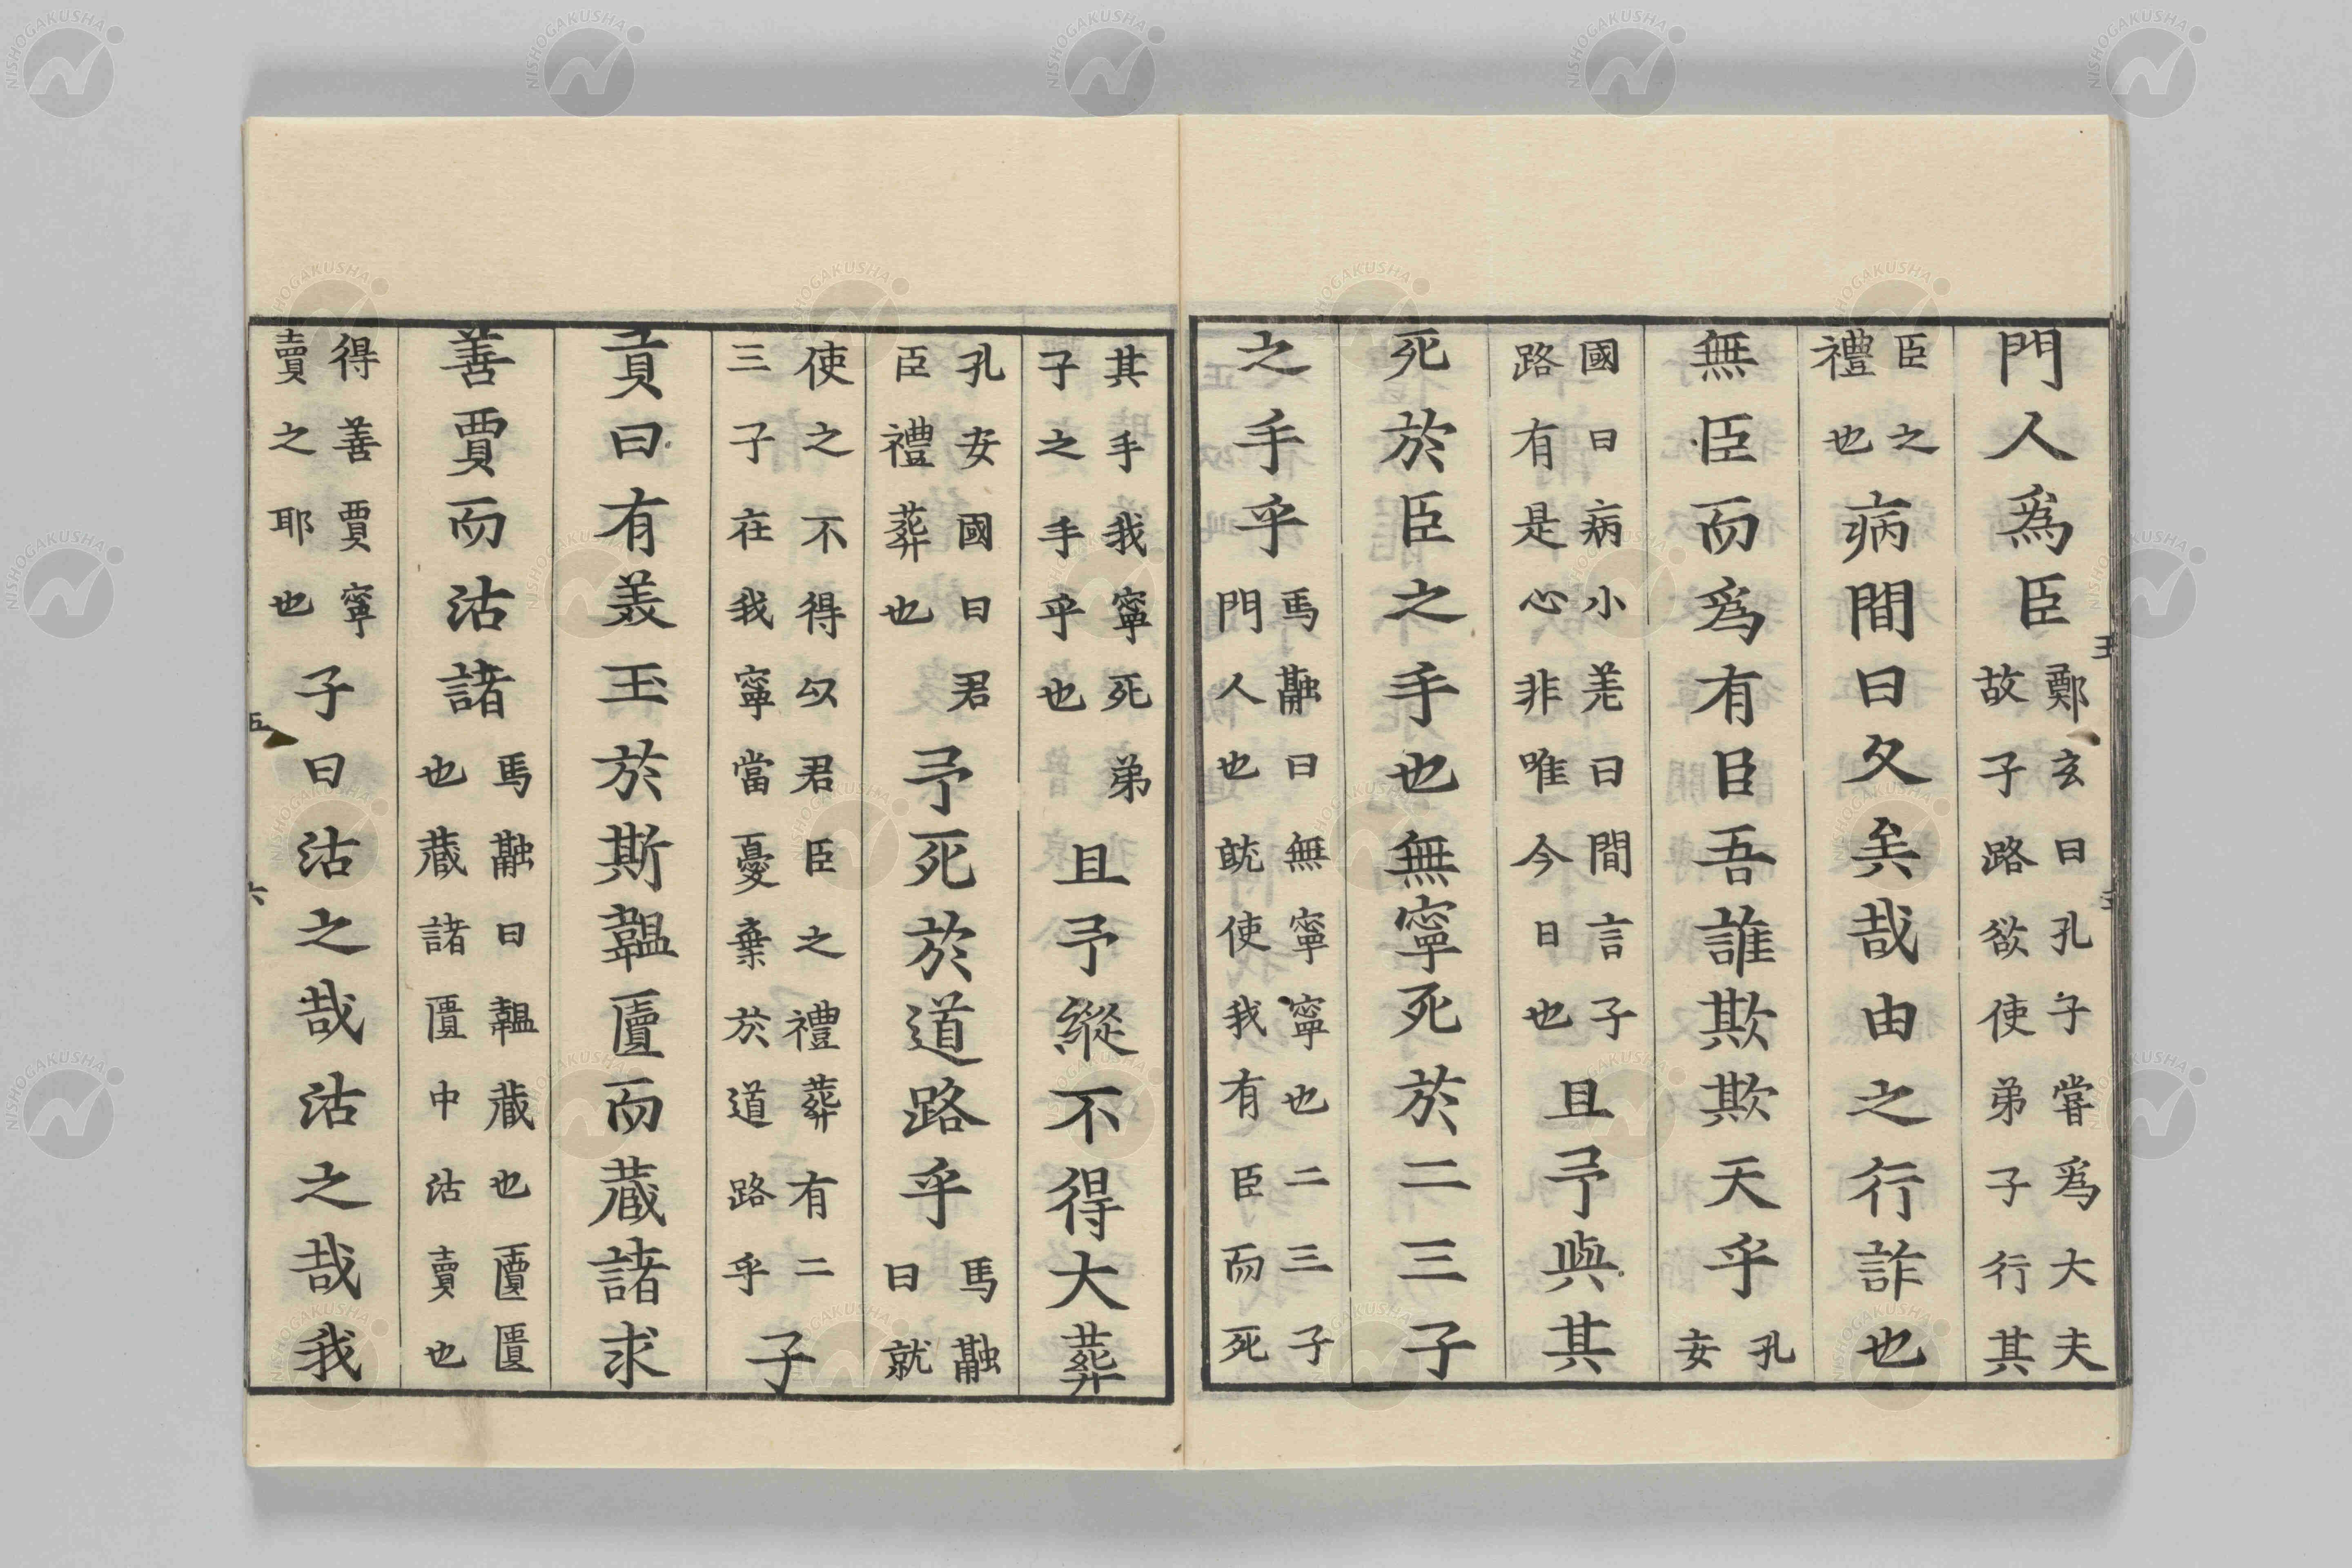 門人爲臣鄭玄曰孔子嘗爲大夫故子路欲使弟子行其
臣之禮也病間曰久矣哉由之行詐也
無臣而爲有臣吾誰欺欺天乎孔安
國曰病小差曰間言子路有是心非唯今日也且予與其
死於臣之手也無寧死於二三子
之手乎馬融曰無寧寧也二三子門人也就使我有臣而死
其手我寧死弟子之手乎也且予縱不得大葬
孔安國曰君臣禮葬也予死於道路乎馬融曰就
使之不得以君臣之禮葬有二三子在我寧當憂棄於道路乎子
貢曰有美玉於斯韞匵而藏諸求
善賈而沽諸馬融曰韞藏也匵匱也藏諸匱中沽賣也
得善賈寧賣之耶也子曰沽之哉沽之哉我
NISHOGAKUSHA